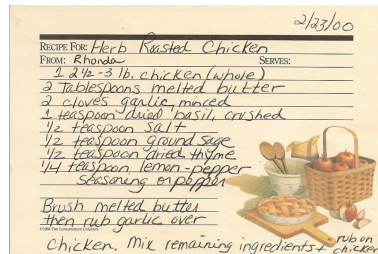 2/23/00
RECIPE FOR: Herb Roasted Chicken
FROM: Rhonda SERVES:
1 2 1/2 - 3 lb. chicken (whole)
2 Tablespoons melted butter
2 cloves garlic, minced
1 teaspoon dried basil, crushed
1/2 teaspoon salt
1/2 teaspoon ground sage
1/2 teaspoon dried thyme
1/4 teaspoon lemon-pepper
seasoning or pepper
Brush melted butter
then rub garlic over
chicken. Mix remaining ingredients + rub on
chicken